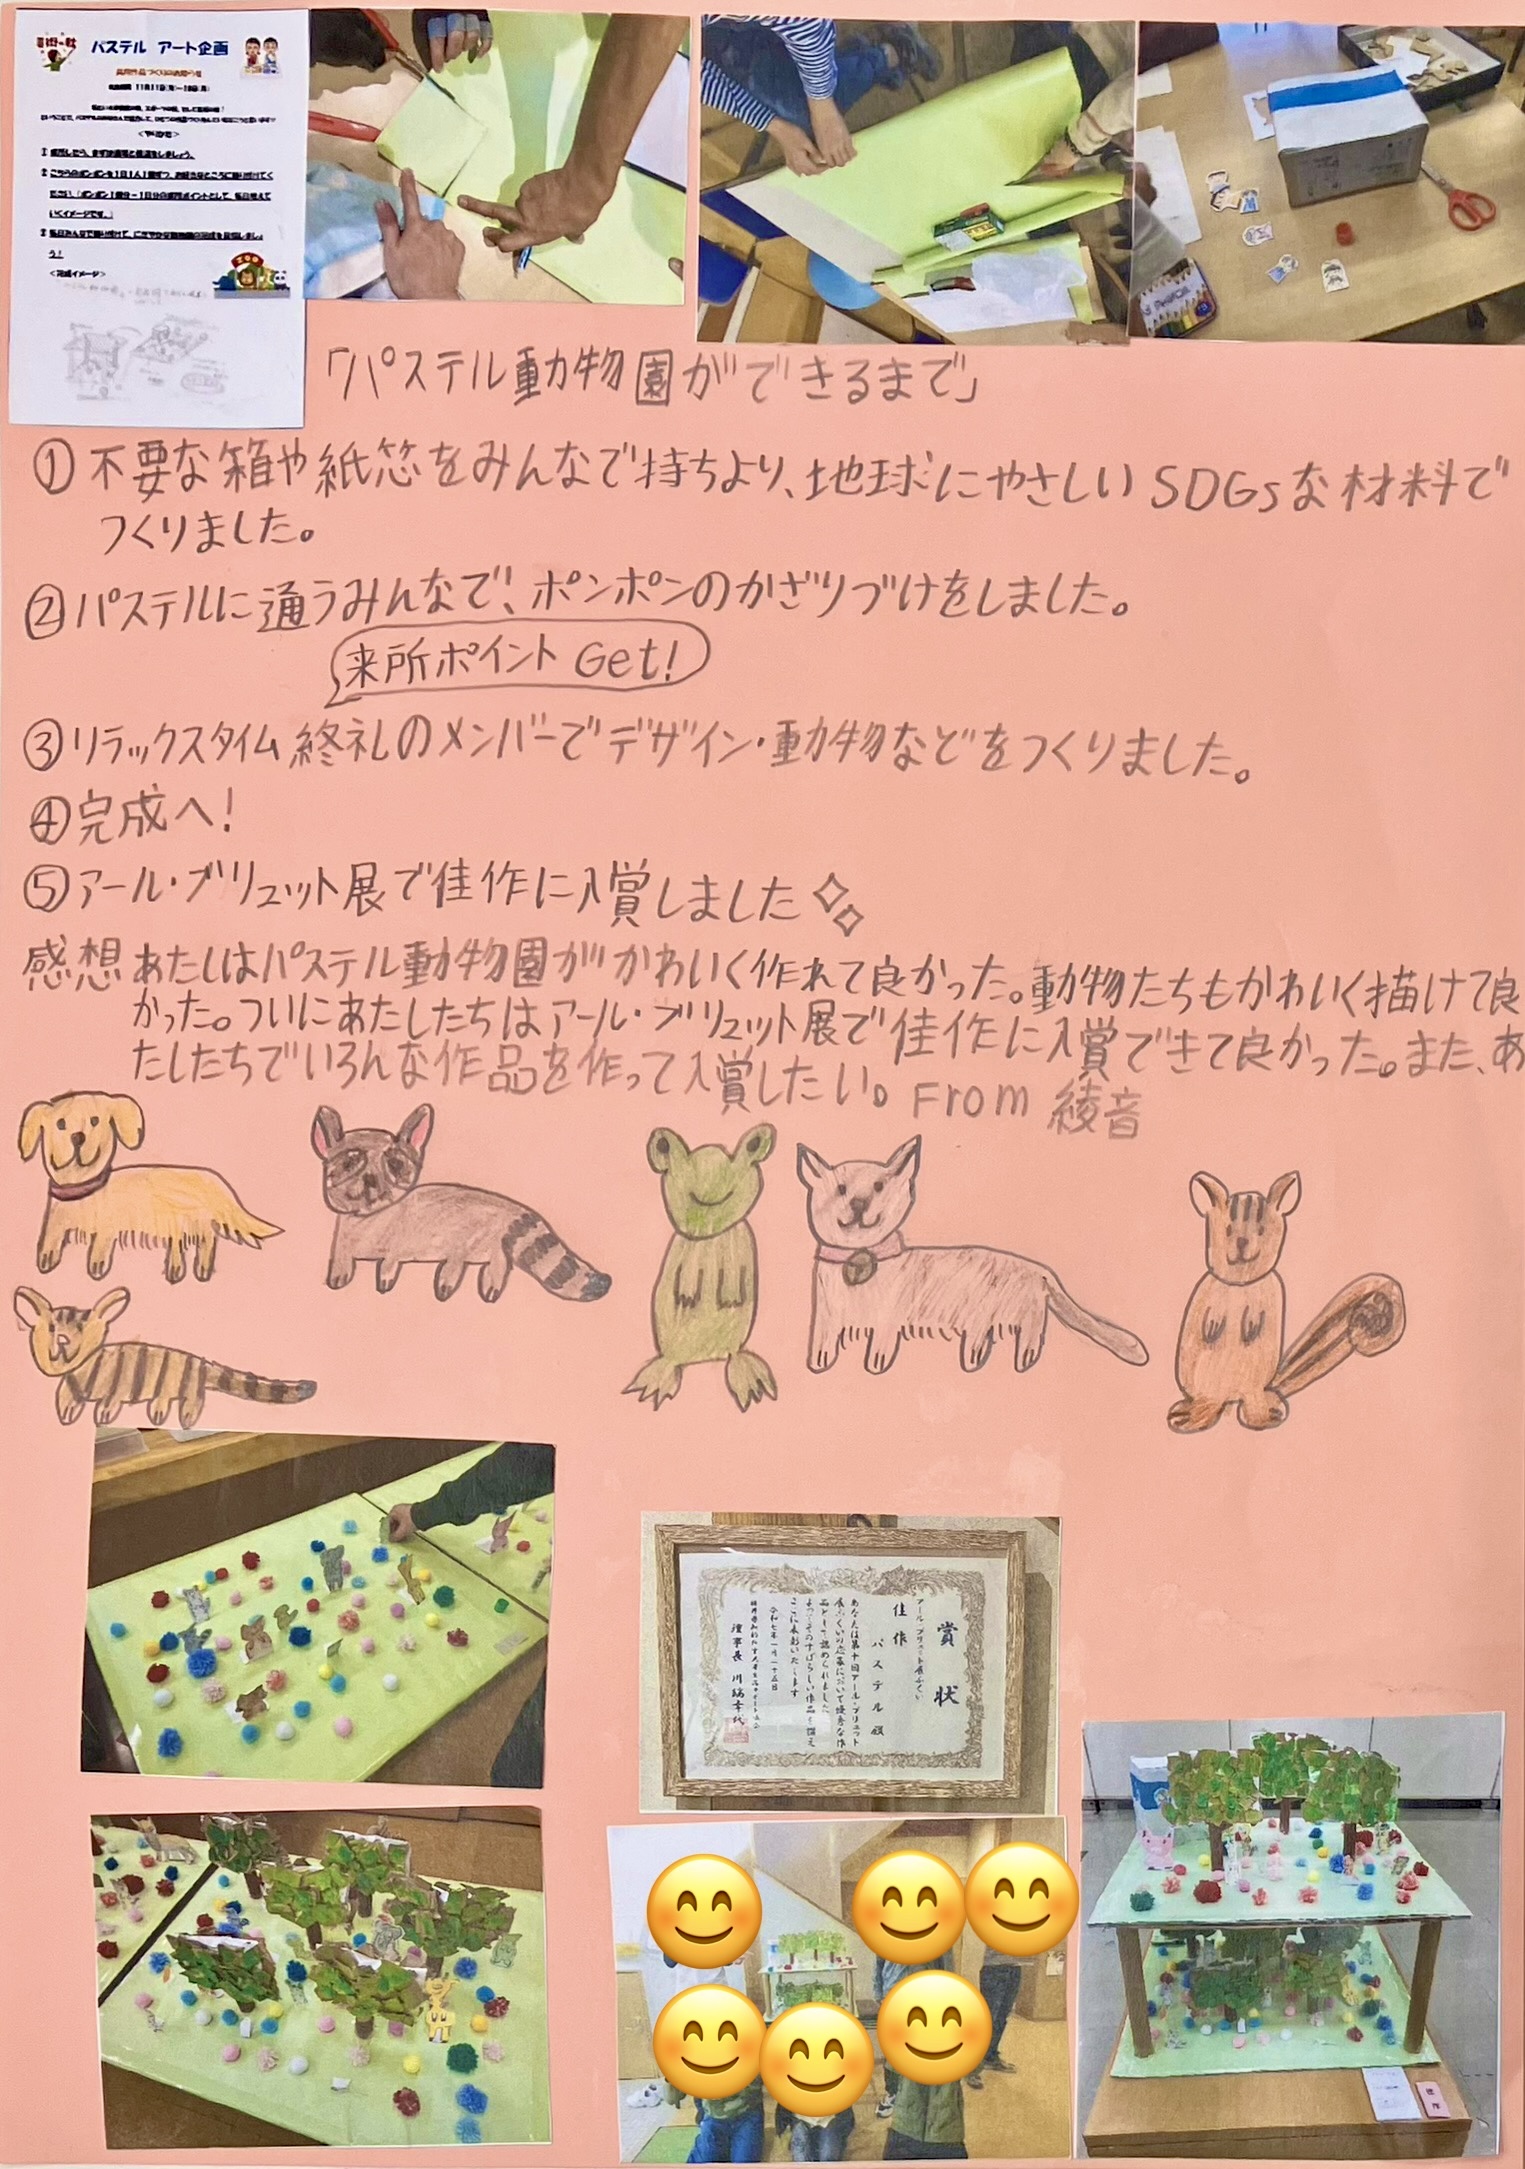 パステル アート企画
「パステル動物園ができるまで」
①不要な箱や紙芯をみんなで持ちより、地球にやさしいSDGsな材料で
つくりました。
②パステルに通うみんなで、ポンポンのかざりづけをしました。
来所ポイント Get!
③リラックスタイム終礼のメンバーでデザイン・動物などをつくりました。
④完成へ!
⑤アール・ブリュット展で佳作に入賞しました
感想 あたしはパステル動物園がかわいく作れて良かった。動物たちもかわいく描けて良
かった。ついにあたしたちはアール・ブリュット展で佳作に入賞できて良かった。また、あ
たしたちでいろんな作品を作って入賞したい。From 綾音
賞状
アール・ブリュット展ふくい
佳作
パステル 殿
あなたは第十回アール・ブリュット
ここに表彰いたします
佳作